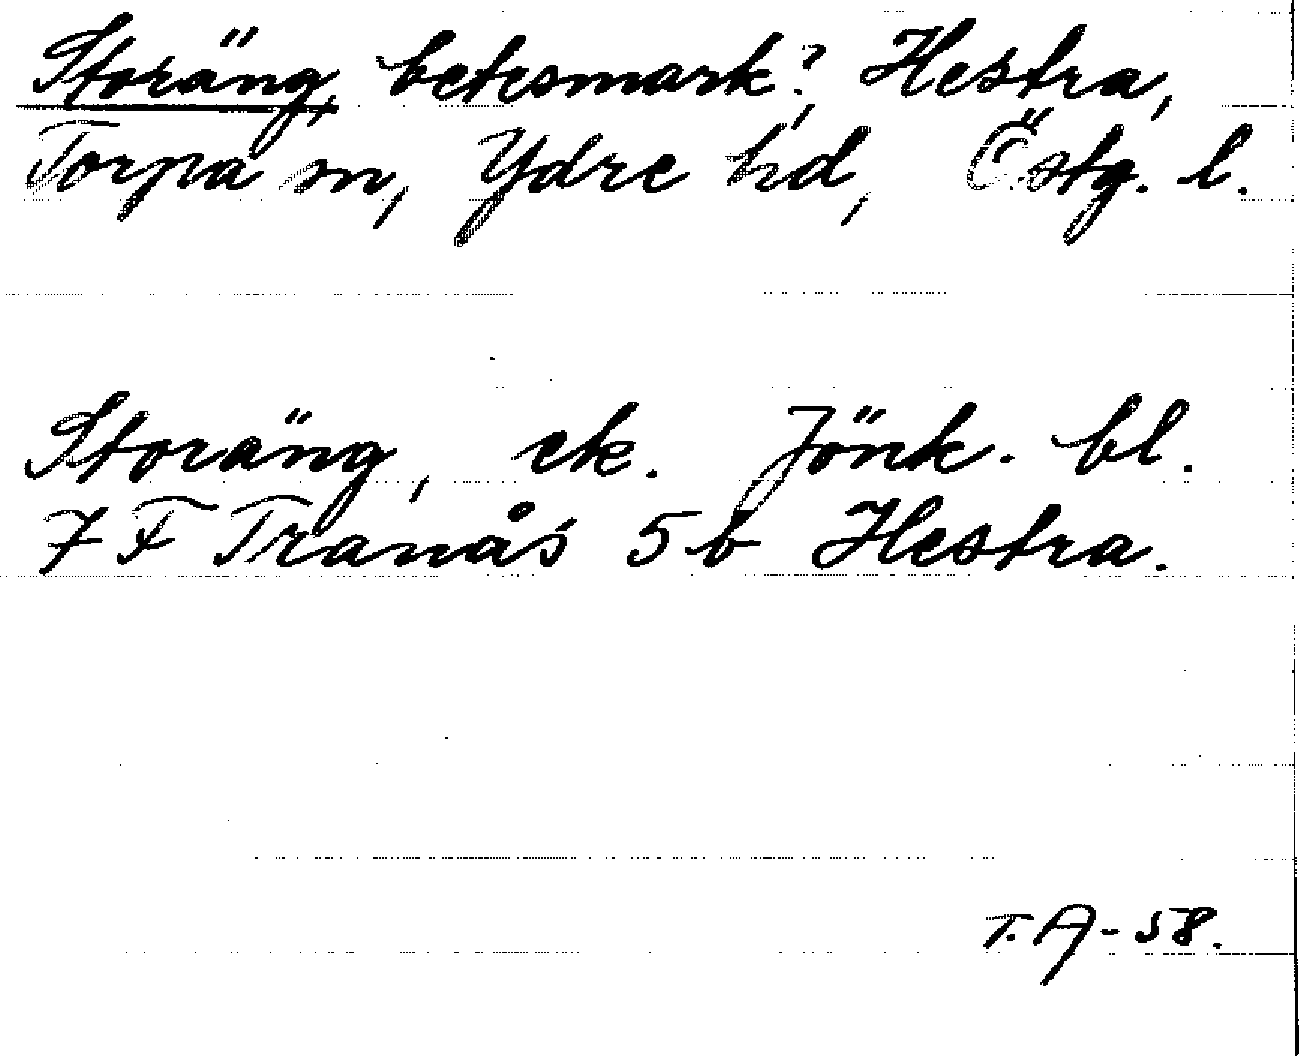 Storäng, betesmark?, Hestra,
Torpa sn, Ydre hd, Östg. l.
Storäng, ek. Jönk. bl.
7 F Tranås 5 b Hestra.
T. A - 58.